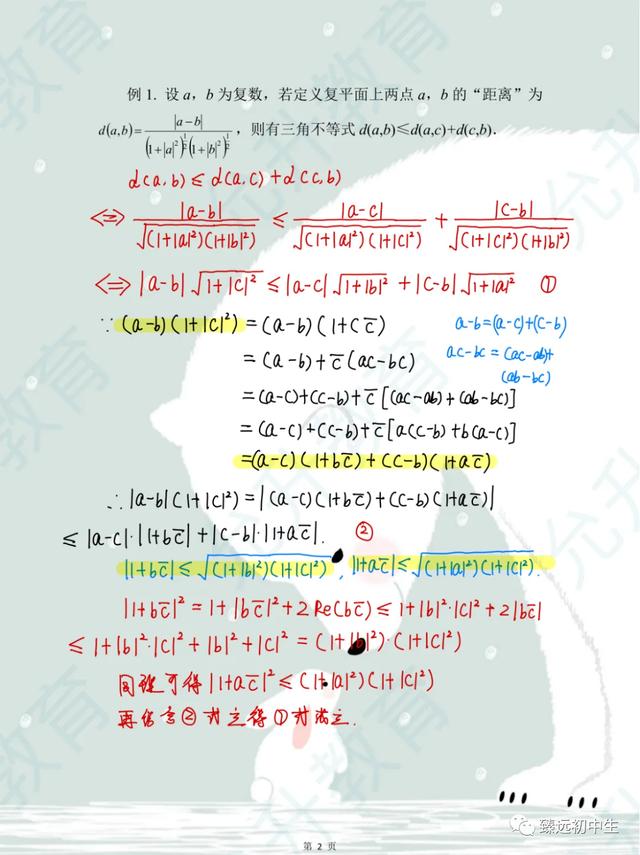 例 1. 设 a，b 为复数，若定义复平面上两点 a，b 的“距离”为
d(a,b)=|a−b|/((1+|a|²)^(1/2)(1+|b|²)^(1/2))，则有三角不等式 d(a,b)≤d(a,c)+d(c,b).
d(a,b)≤d(a,c)+d(c,b)
⟺ |a-b|/√((1+|a|²)(1+|b|²)) ≤ |a-c|/√((1+|a|²)(1+|c|²)) + |c-b|/√((1+|c|²)(1+|b|²))
⟺ |a-b|√(1+|c|²) ≤ |a-c|√(1+|b|²) + |c-b|√(1+|a|²) ①
∵ (a-b)(1+|c|²) = (a-b)(1+cc̅)
a-b=(a-c)+(c-b)
= (a-b)+c̅(ac-bc)
ac-bc = (ac-ab)+
(ab-bc)
=(a-c)+(c-b)+c̅[(ac-ab)+(ab-bc)]
=(a-c)+(c-b)+c̅[a(c-b)+b(a-c)]
=(a-c)(1+bc̅)+(c-b)(1+ac̅)
∴ |a-b|(1+|c|²)=|(a-c)(1+bc̅)+(c-b)(1+ac̅)|
≤ |a-c|·|1+bc̅|+|c-b|·|1+ac̅|. ②
|1+bc̅|≤√((1+|b|²)(1+|c|²)), |1+ac̅|≤√((1+|a|²)(1+|c|²)).
|1+bc̅|²=1+|bc̅|²+2Re(bc̅)≤1+|b|²·|c|²+2|bc̅|
≤1+|b|²·|c|²+|b|²+|c|²=(1+|b|²)·(1+|c|²)
同理可得|1+ac̅|²≤(1+|a|²)(1+|c|²)
再结合②式立得①式成立.
第 2 页
臻远初中生
教育
允升